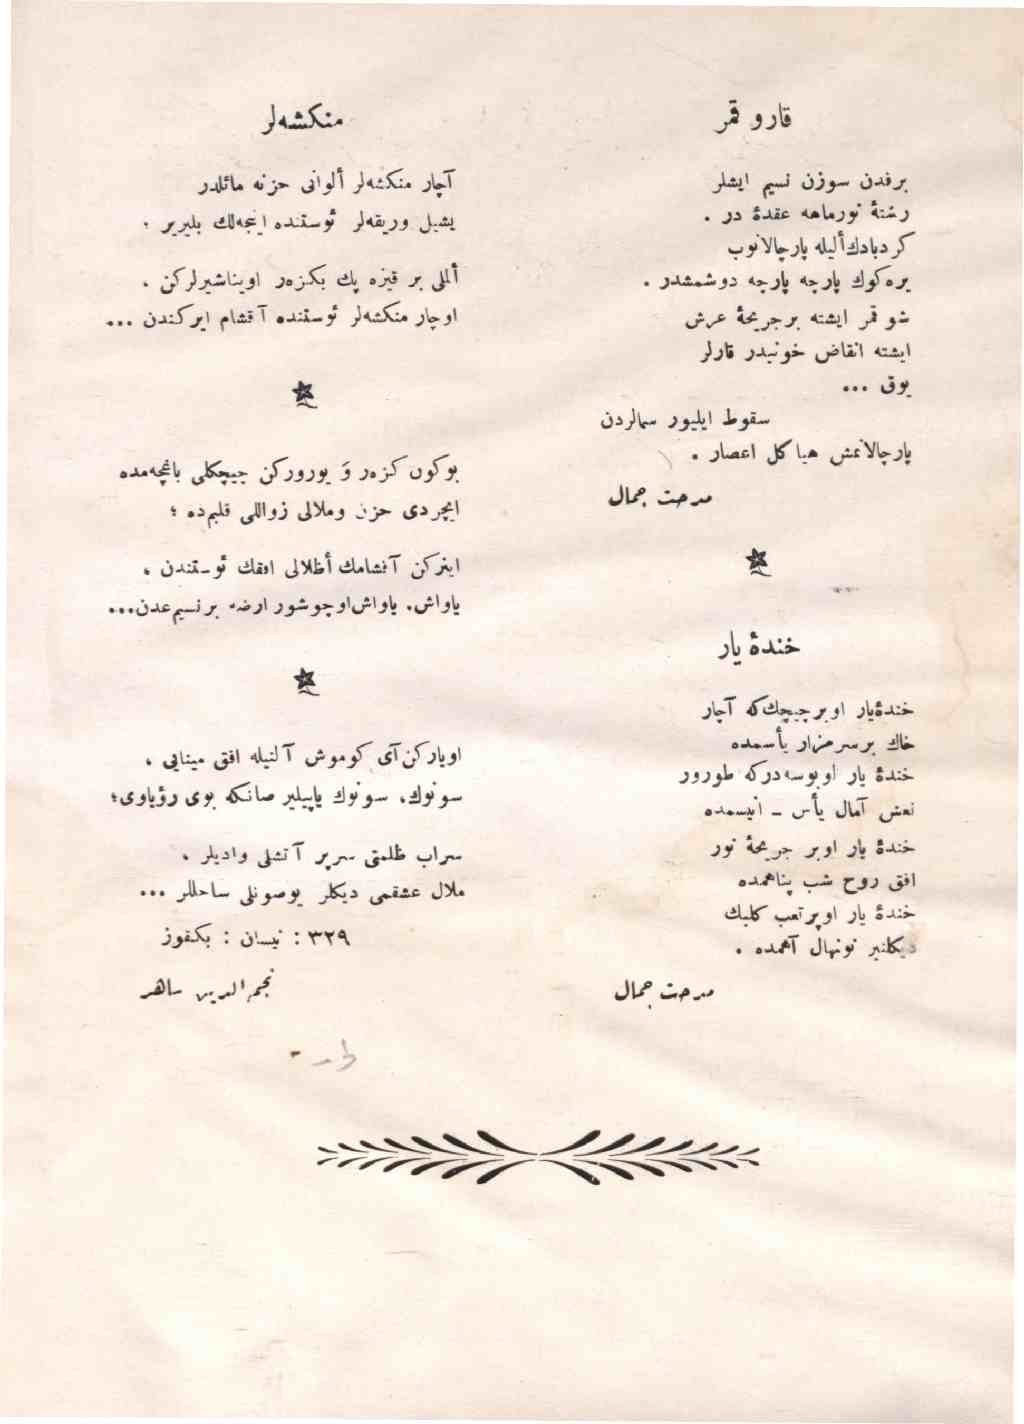 قارو قمر
برفدن سوزن نسیم ایشلر
رشتهٔ نورماهه عقدهٔ در .
كردبادك أليله پارچالانوب
یره كوك پارچه پارچه دوشمشدر .
شو قمر ایشته برجریحهٔ عرش
ایشته انقاض خونیدر قارلر
یوق ...
سقوط ایلیور سمالردن
پارچالانمش هیاكل اعصار .
مدحت جمال
خندهٔ یار
خندهٔیار اوبرچیچك‌كه آچار
خاك برسرمزار یأسمده
خندهٔ یار اوبوسه‌دركه طورور
نعش آمال یأس ـ انیسمده
خندهٔ یار اوبر جریحهٔ نور
افق روح شب پناهمده
خندهٔ یار اوبرتعب كلبك
دیكلنیر نونهال آهمده .
مدحت جمال
منكشه‌لر
آچار منكشه‌لر ألوانی حزنه مائلدر
یشیل وریقه‌لر ئوستنده اینجه‌لك بلیریر ؛
ألملی بر قیزه پك بكزه‌ر اویناشیرلركن ،
اوچار منكشه‌لر ئوستنده آقشام ایركندن ...
بوكون كزه‌ر وَ یوروركن چیچكلی باغچه‌مده
ایچردی حزن وملالی زواللی قلبم‌ده ؛
اینركن آقشامك أظلالی افقك ئوستندن ،
یاواش. یاواش‌اوچوشور ارضه برنسیم‌عدن...
اویاركن‌آی كوموش آلنیله افق مینایی ،
سونوك، سونوك یاپیلیر صانكه بوی رؤیاوی؛
سراب ظلمتی سرپر آتشلی وادیلر ،
ملال عشقمی دیكلر یوصونلی ساحللر ...
٣٢٩ : نیسان : بكقوز
نجم‌الدین ساهر